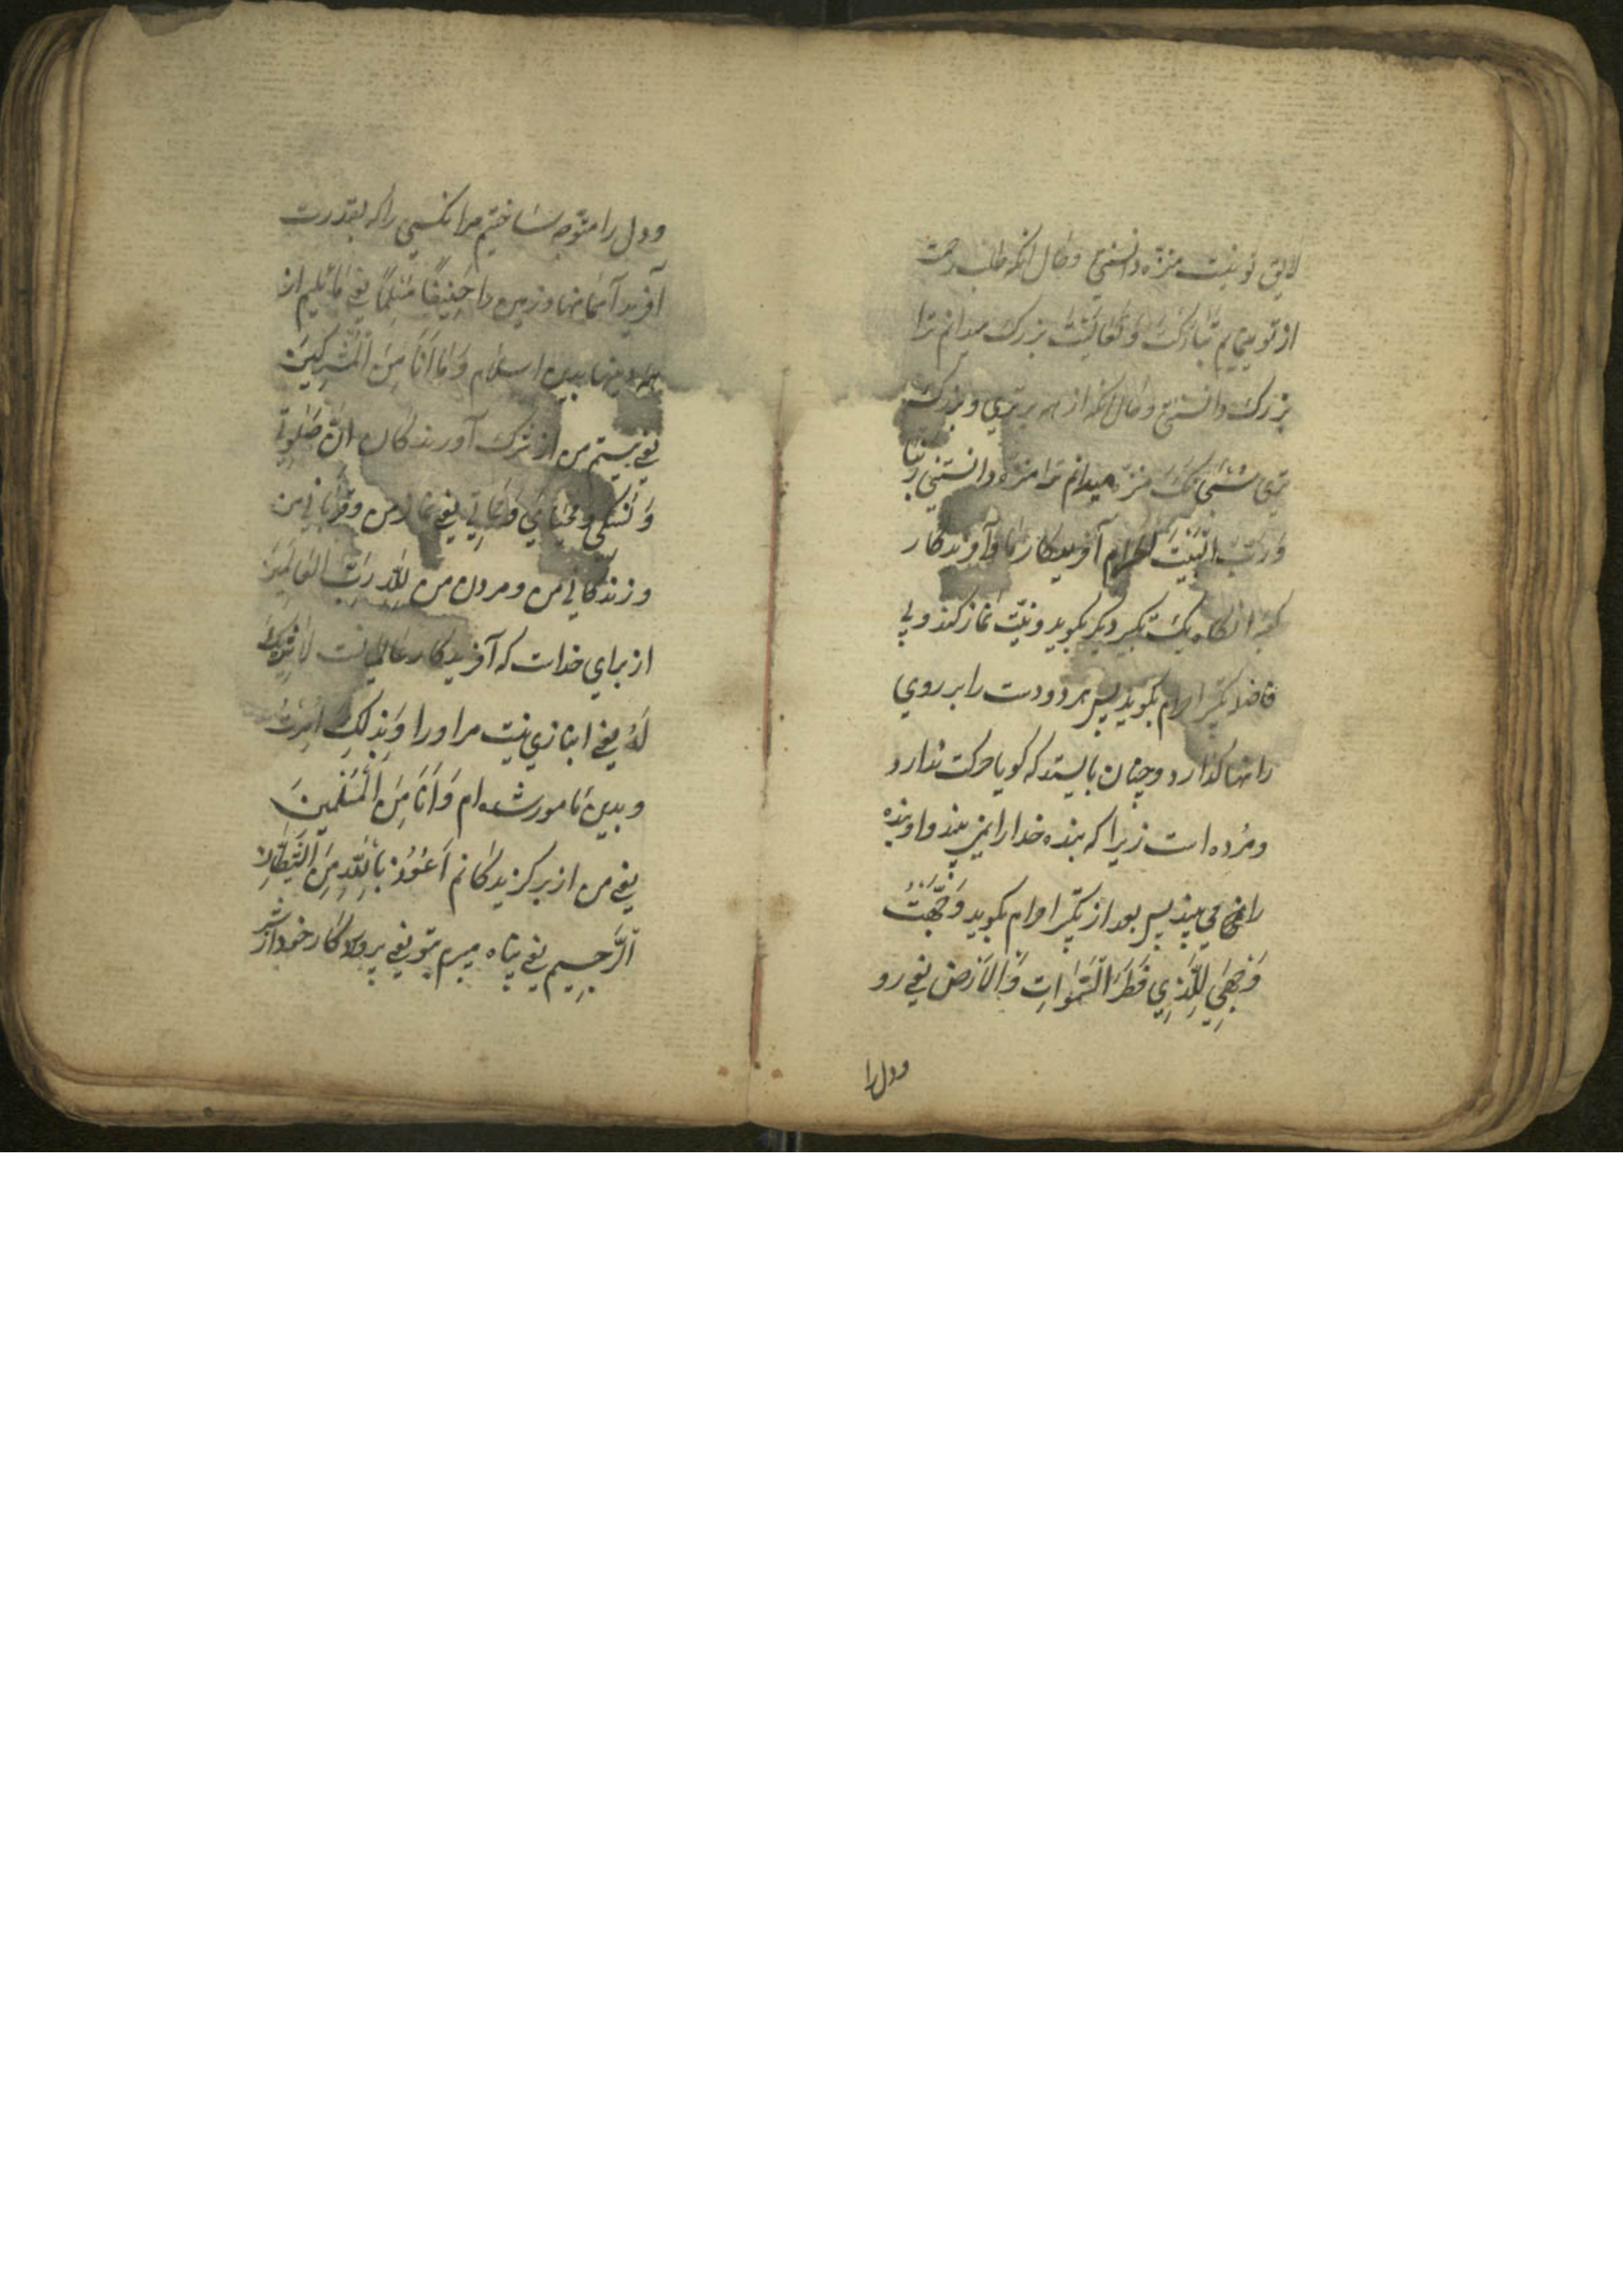 لایق تو نیست منزه دانستنی و حال آنکه طلب رحمت
از تو مینمایم تبارکت و تعالیت بزرک میدانم ترا
بزرک دانستنی و حال آنکه از هر برتری و بزرک
تری سبحانک منزه میدانم ترا منزه دانستنی ربنا
ورب البیت الحرام آفریدکار ما و آفریدکار
کعبه انکاه یک تکبیر دیکر بکوید و نیت نماز کند و بی
فاصله تکبیر احرام بکوید پس هر دو دست را بر روی
رانها کذارد و چنان بایستد که کویا حرکت ندارد
ومرده است زیرا که بنده خدا را نمی بیند و او بنده
را می بیند پس بعد از تکبیر احرام بکوید وجهت
وجهی للذی فطر السموات والارض یعنی رو
ودل را
ودل را متوجه ساختم مر انکسی را که بقدرت
آفرید آسمانها وزمین را حنیفا مسلما یعنی مایلم از
همه دینها بدین اسلام وما انا من المشرکین
یعنی نیستم من از شرک آورندکان ان صلوتی
ونسکی ومحیای ومماتی یعنی نماز من وقربانی من
وزندکانی من ومردن من لله رب العالمین
از برای خداست که آفریدکار عالمیانست لا شریک
له یعنی انبازی نیست مر اورا وبذلک امرت
وبدین مامور شده ام وانا من المسلمین
یعنی من از برکزیدکانم اعوذ بالله من الشیطان
الرجیم یعنی پناه میبرم بتو یعنی پروردکار خود از شر